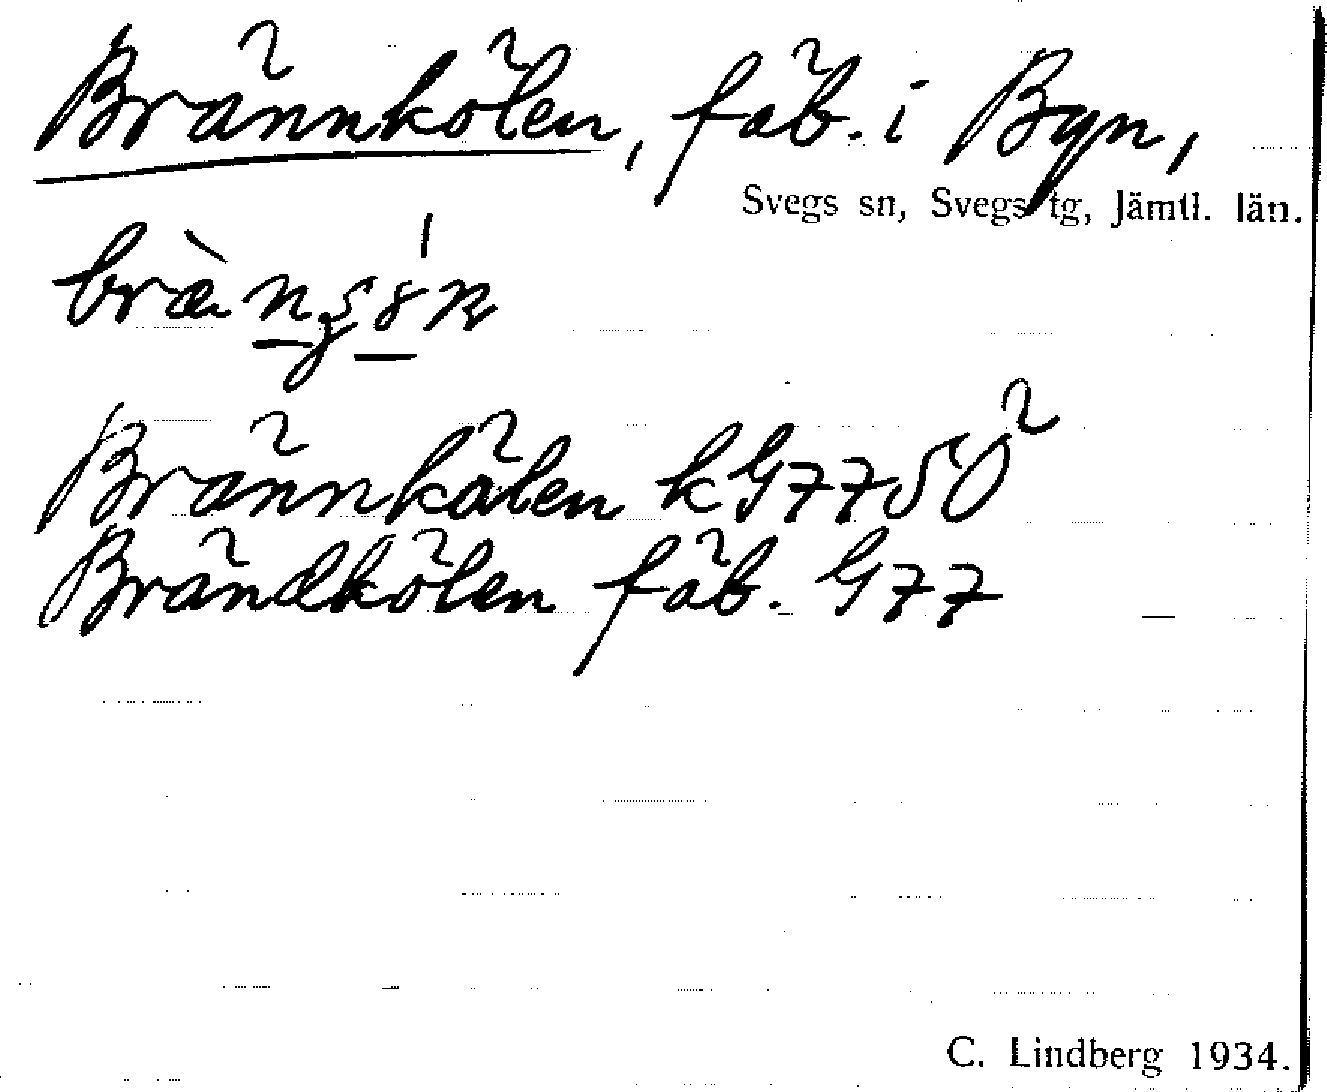 Brännkölen, fäb. i Byn,
Svegs sn, Svegs tg, Jämtl. län.
Brännkälen kG77SÖ
Brändkölen fäb. G77
C. Lindberg 1934.